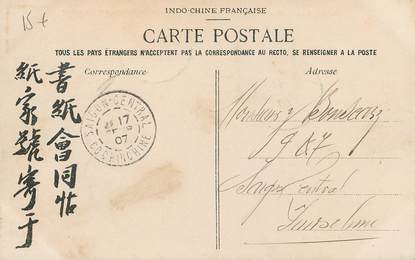 15+
INDO-CHINE FRANÇAISE
CARTE POSTALE
TOUS LES PAYS ÉTRANGERS N'ACCEPTENT PAS LA CORRESPONDANCE AU RECTO, SE RENSEIGNER A LA POSTE
Correspondance
Adresse
書紙會同帖
紙家號寄于
SAIGON-CENTRAL
17
07
COCHINCHINE
Saigon Central